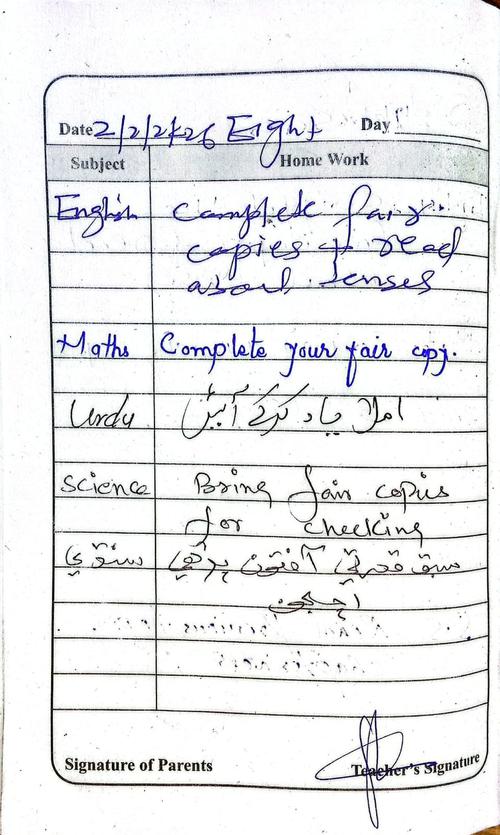 Date 2/2/2026 Eight Day
Subject Home Work
English Complete fair
copies + read
about senses
Maths Complete your fair copy.
Urdu املا یاد کرکے آئیں
Science Bring fair copies
for checking
سنڌي سبق قدرتي آفتون پڙهي
اچجو
Signature of Parents Teacher's Signature